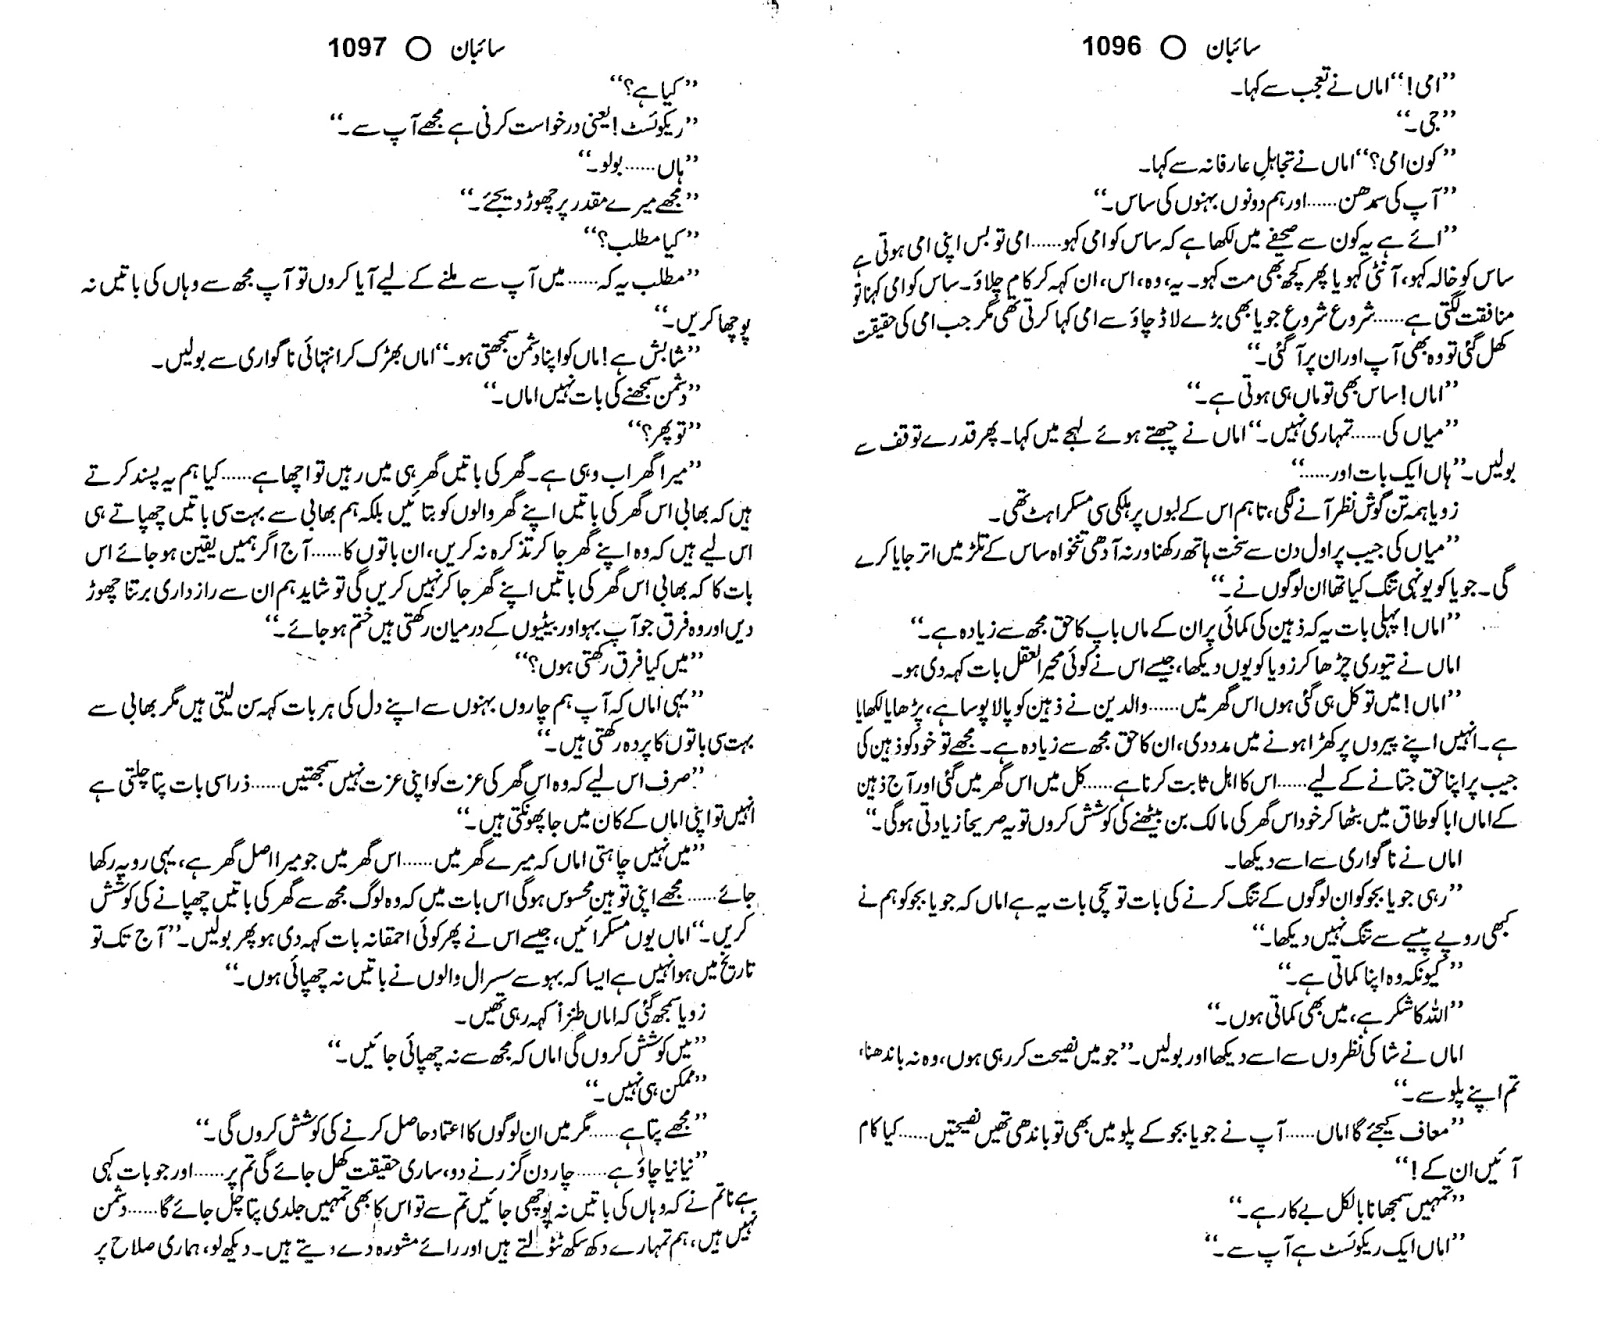 سائبان ○ 1096
’’امی!‘‘ اماں نے تعجب سے کہا۔
’’جی۔‘‘
’’کون امی؟‘‘ اماں نے تجاہلِ عارفانہ سے کہا۔
’’آپ کی سمدھن......اور ہم دونوں بہنوں کی ساس۔‘‘
’’ائے ہے یہ کون سے صحیفے میں لکھا ہے کہ ساس کو امی کہو......امی تو بس اپنی امی ہوتی ہے
ساس کو خالہ کہو، آنٹی کہو یا پھر کچھ بھی مت کہو۔ یہ، وہ، اس، ان کہہ کر کام چلاؤ۔ ساس کو امی کہنا تو
منافقت لگتی ہے......شروع شروع جویا بھی بڑے لاڈ چاؤ سے امی کہا کرتی تھی مگر جب امی کی حقیقت
کھل گئی تو وہ بھی آپ اور ان پر آ گئی۔‘‘
’’اماں! ساس بھی تو ماں ہی ہوتی ہے۔‘‘
’’میاں کی......تمہاری نہیں۔‘‘ اماں نے چبھتے ہوئے لہجے میں کہا۔ پھر قدرے توقف سے
بولیں۔ ’’ہاں ایک بات اور......‘‘
زویا ہمہ تن گوش نظر آنے لگی، تاہم اس کے لبوں پر ہلکی سی مسکراہٹ تھی۔
’’میاں کی جیب پر اول دن سے سخت ہاتھ رکھنا ورنہ آدھی تنخواہ ساس کے تلڑ میں اتر جایا کرے
گی۔ جویا کو یونہی تنگ کیا تھا ان لوگوں نے۔‘‘
’’اماں! پہلی بات یہ کہ ذہین کی کمائی پر ان کے ماں باپ کا حق مجھ سے زیادہ ہے۔‘‘
اماں نے تیوری چڑھا کر زویا کو یوں دیکھا، جیسے اس نے کوئی محیرالعقل بات کہہ دی ہو۔
’’اماں! میں تو کل ہی گئی ہوں اس گھر میں......والدین نے ذہین کو پالا پوسا ہے، پڑھایا لکھایا
ہے۔ انہیں اپنے پیروں پر کھڑا ہونے میں مدد دی، ان کا حق مجھ سے زیادہ ہے۔ مجھے تو خود کو ذہین کی
جیب پر اپنا حق جتانے کے لیے......اس کا اہل ثابت کرنا ہے......کل میں اس گھر میں گئی اور آج ذہین
کے اماں ابا کو طاق میں بٹھا کر خود اس گھر کی مالک بن بیٹھنے کی کوشش کروں تو یہ صریحاً زیادتی ہوگی۔‘‘
اماں نے ناگواری سے اسے دیکھا۔
’’رہی جویا بجو کو ان لوگوں کے تنگ کرنے کی بات تو سچی بات یہ ہے اماں کہ جویا بجو کو ہم نے
کبھی روپے پیسے سے تنگ نہیں دیکھا۔‘‘
’’کیونکہ وہ اپنا کماتی ہے۔‘‘
’’اللہ کا شکر ہے، میں بھی کماتی ہوں۔‘‘
اماں نے شاکی نظروں سے اسے دیکھا اور بولیں۔ ’’جو میں نصیحت کر رہی ہوں، وہ نہ باندھنا،
تم اپنے پلو سے۔‘‘
’’معاف کیجئے گا اماں......آپ نے جویا بجو کے پلو میں بھی تو باندھی تھیں نصیحتیں......کیا کام
آئیں ان کے!‘‘
’’تمہیں سمجھانا بالکل بے کار ہے۔‘‘
’’اماں ایک ریکوئسٹ ہے آپ سے۔‘‘
سائبان ○ 1097
’’کیا ہے؟‘‘
’’ریکوئسٹ! یعنی درخواست کرنی ہے مجھے آپ سے۔‘‘
’’ہاں......بولو۔‘‘
’’مجھے میرے مقدر پر چھوڑ دیجئے۔‘‘
’’کیا مطلب؟‘‘
’’مطلب یہ کہ......میں آپ سے ملنے کے لیے آیا کروں تو آپ مجھ سے وہاں کی باتیں نہ
پوچھا کریں۔‘‘
’’شابش ہے! ماں کو اپنا دشمن سمجھتی ہو۔‘‘ اماں بھڑک کر انتہائی ناگواری سے بولیں۔
’’دشمن سمجھنے کی بات نہیں اماں۔‘‘
’’تو پھر؟‘‘
’’میرا گھر اب وہی ہے۔ گھر کی باتیں گھر ہی میں رہیں تو اچھا ہے......کیا ہم یہ پسند کرتے
ہیں کہ بھابی اس گھر کی باتیں اپنے گھر والوں کو بتائیں بلکہ ہم بھابی سے بہت سی باتیں چھپاتے ہی
اس لیے ہیں کہ وہ اپنے گھر جا کر تذکرہ نہ کریں، ان باتوں کا......آج اگر ہمیں یقین ہو جائے اس
بات کا کہ بھابی اس گھر کی باتیں اپنے گھر جا کر نہیں کریں گی تو شاید ہم ان سے رازداری برتنا چھوڑ
دیں اور وہ فرق جو آپ بہو اور بیٹیوں کے درمیان رکھتی ہیں ختم ہو جائے۔‘‘
’’میں کیا فرق رکھتی ہوں؟‘‘
’’یہی اماں کہ آپ ہم چاروں بہنوں سے اپنے دل کی ہر بات کہہ سن لیتی ہیں مگر بھابی سے
بہت سی باتوں کا پردہ رکھتی ہیں۔‘‘
’’صرف اس لیے کہ وہ اس گھر کی عزت کو اپنی عزت نہیں سمجھتیں......ذرا سی بات پتا چلتی ہے
انہیں تو اپنی اماں کے کان میں جا پھونکتی ہیں۔‘‘
’’میں نہیں چاہتی اماں کہ میرے گھر میں......اس گھر میں جو میرا اصل گھر ہے، یہی رویہ رکھا
جائے......مجھے اپنی توہین محسوس ہوگی اس بات میں کہ وہ لوگ مجھ سے گھر کی باتیں چھپانے کی کوشش
کریں۔‘‘ اماں یوں مسکرائیں، جیسے اس نے پھر کوئی احمقانہ بات کہہ دی ہو پھر بولیں۔ ’’آج تک تو
تاریخ میں ہوا نہیں ہے ایسا کہ بہو سے سسرال والوں نے باتیں نہ چھپائی ہوں۔‘‘
زویا سمجھ گئی کہ اماں طنزاً کہہ رہی تھیں۔
’’میں کوشش کروں گی اماں کہ مجھ سے نہ چھپائی جائیں۔‘‘
’’ممکن ہی نہیں۔‘‘
’’مجھے پتا ہے......مگر میں ان لوگوں کا اعتماد حاصل کرنے کی کوشش کروں گی۔‘‘
’’نیا نیا چاؤ ہے......چار دن گزرنے دو، ساری حقیقت کھل جائے گی تم پر......اور جو بات کہی
ہے نا تم نے کہ وہاں کی باتیں نہ پوچھی جائیں تم سے تو اس کا بھی تمہیں جلدی پتا چل جائے گا......دشمن
نہیں ہیں، ہم تمہارے دکھ سکھ ٹٹولتے ہیں اور رائے مشورہ دے دیتے ہیں۔ دیکھ لو، ہماری صلاح پر